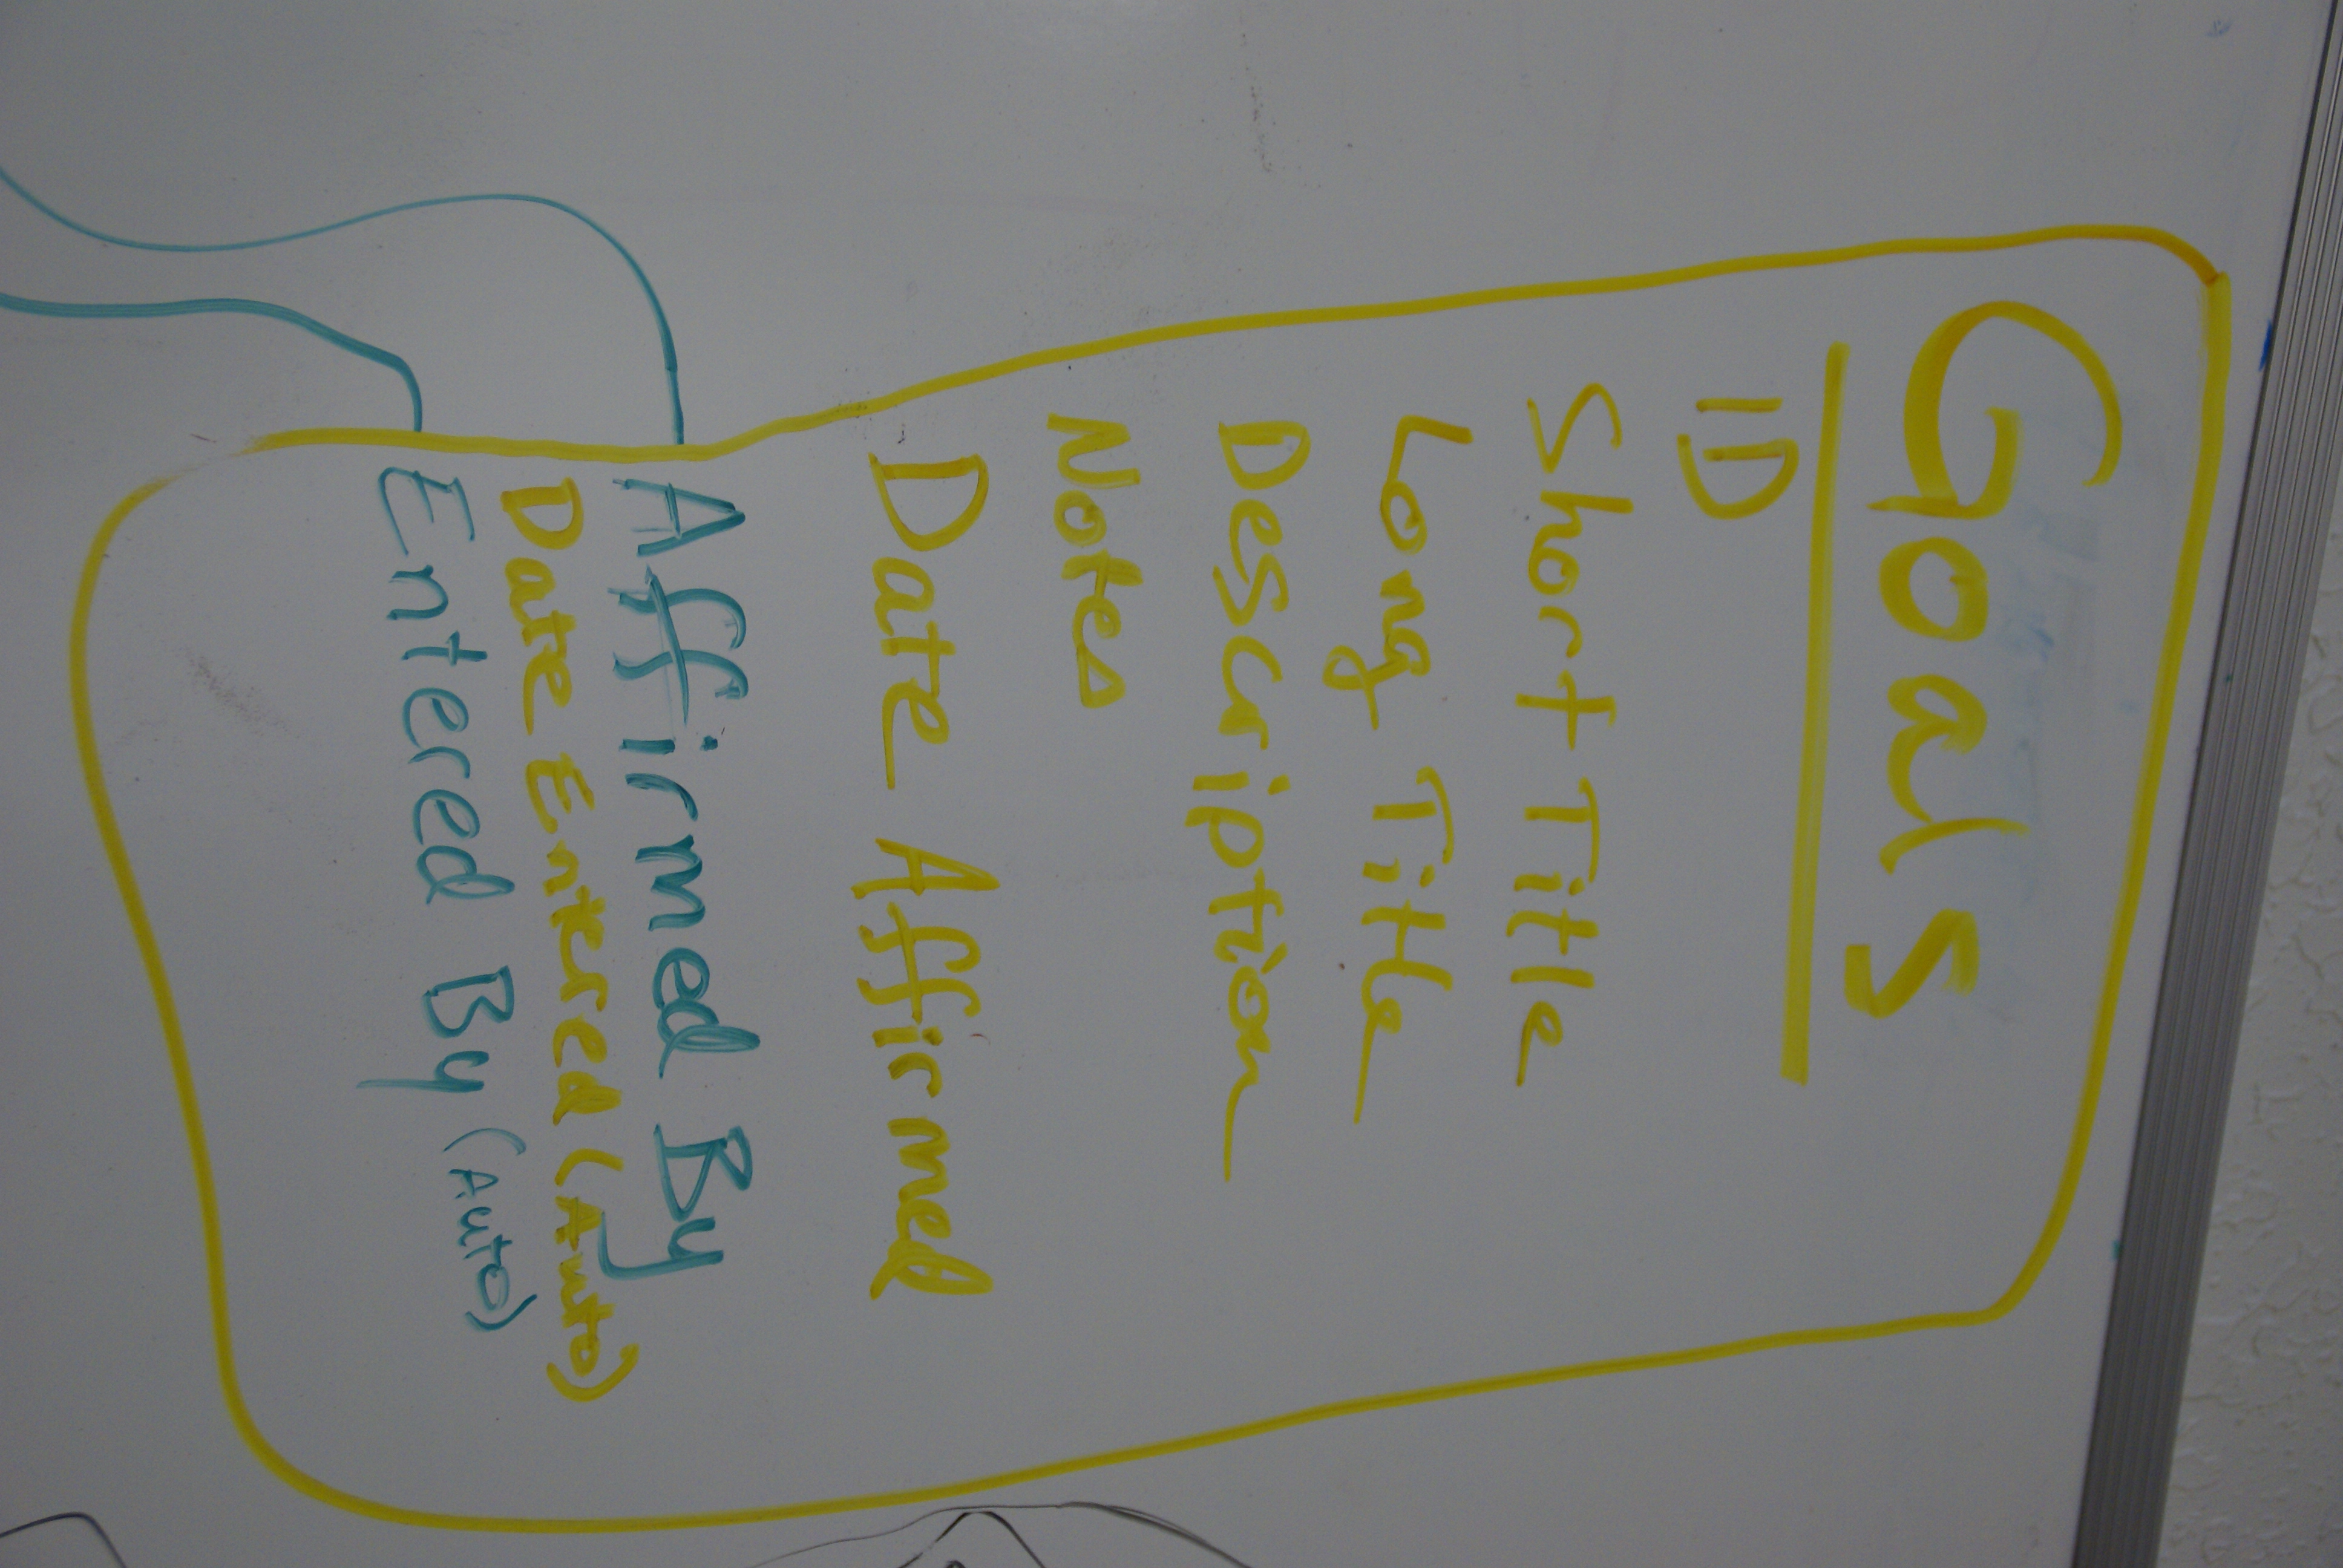 Goals
ID
Short Title
Long Title
Description
Notes
Date Affirmed
Affirmed By
Date Entered (Auto)
Entered By (Auto)